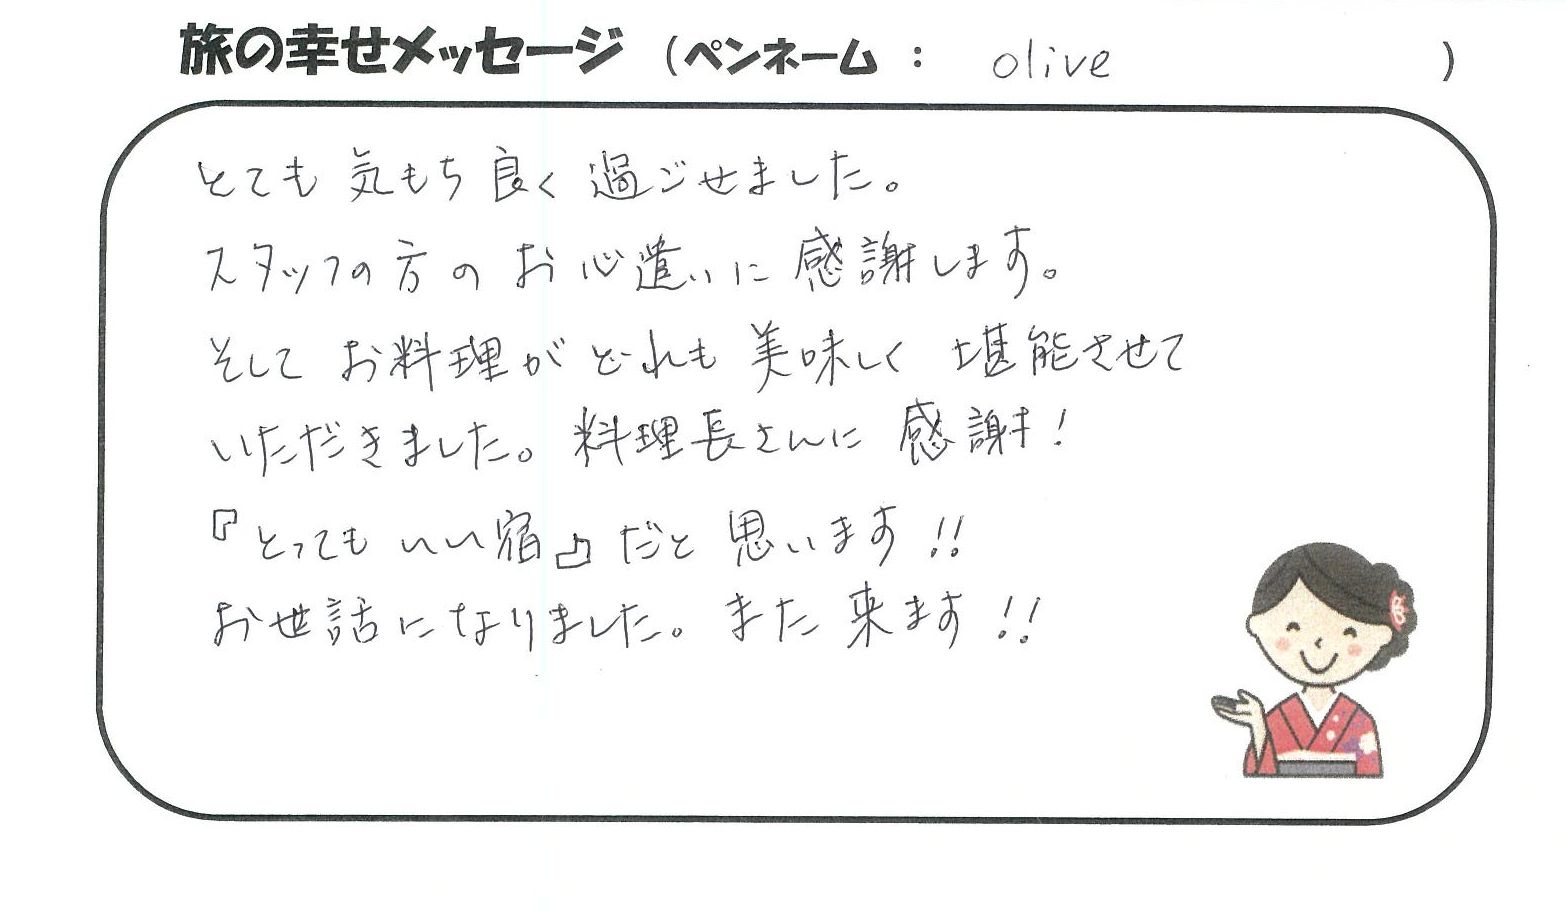 旅の幸せメッセージ (ペンネーム : olive )
とても気もち良く過ごせました。
スタッフの方のお心遣いに感謝します。
そしてお料理がどれも美味しく堪能させて
いただきました。料理長さんに感謝!
『とってもいい宿』だと思います!!
お世話になりました。また来ます!!